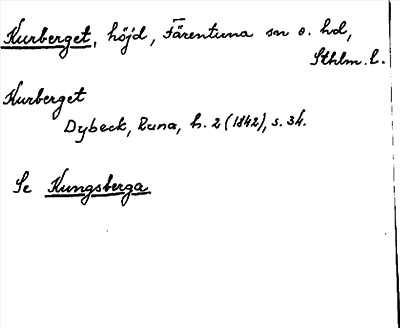 Kurberget, höjd, Färentuna sn o. hd,
Sthlm. l.
Kurberget
Dybeck, Runa, h. 2 (1842), s. 34.
Se Kungsberga